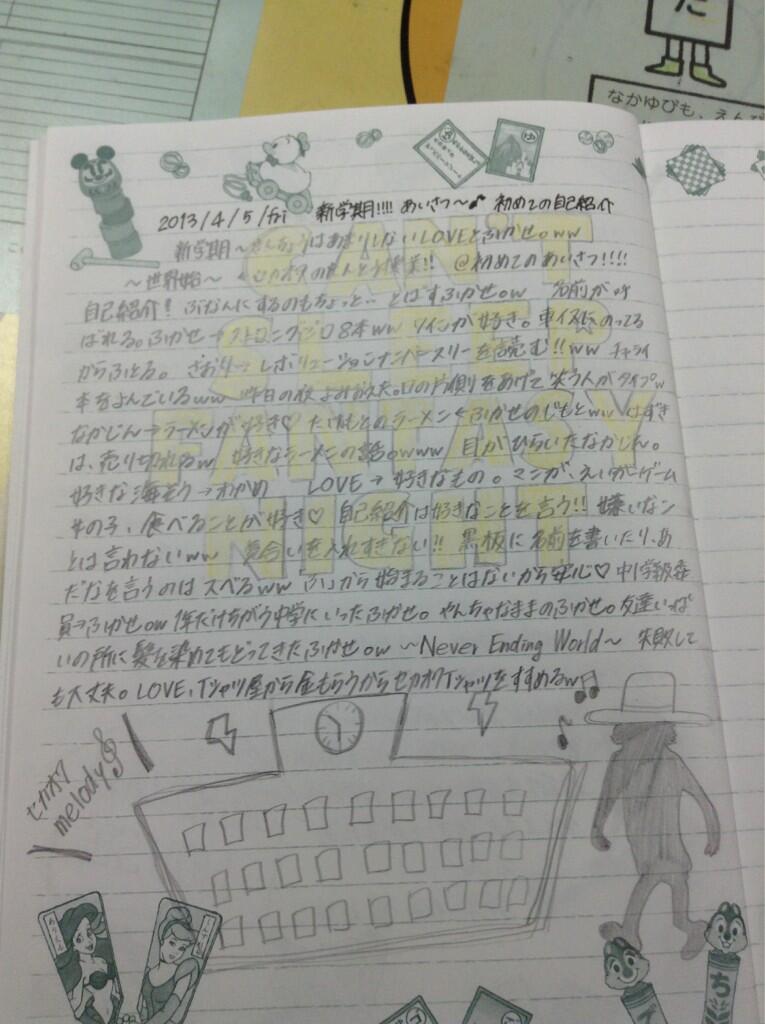 なかゆびも、えんぴ
2013/4/5/fri 新学期!!!! あいさつ〜♪ 初めての自己紹介
新学期〜きんちょうはあまりしないLOVEとふかせ。ww
〜世界始〜 セカオワの 授業!! @初めてのあいさつ!!!!
自己紹介! ぶなんにするのもちょっと‥ とばすふかせow 名前がよ
ばれる。ふかせ→ストロングジロ8本ww ワインが好き。車イスにのってる
からふとる。さおり→レボリューションナンバースリーを読む!!ww チャライ
本をよんでいるww 昨日の夜よみおえた。口の片側をあげて笑う人がタイプw
なかじん→ラーメンが好き♡ たけもとのラーメン←ふかせのじもとww はずき
は、売り切れるw 好きなラーメンの話。www 目がひらいたなかじん。
好きな海そう→わかめ LOVE→好きなもの。マンガ、えいが、ゲーム
女の子、食べることが好き♡ 自己紹介は好きなことを言う!! 嫌いなン
とは言わないww 気合いを入れすぎない!! 黒板に名前を書いたり、あ
だなを言うのはスベるww 「ふ」から始まることはないから安心♡ 中1学級委
員→ふかせow 1年だけちがう中学にいったふかせ。やんちゃなままのふかせ。友達いっぱ
いの所に髪を染めてもどってきたふかせow 〜Never Ending World〜 失敗して
も大丈夫。LOVE、Tシャツ屋から金もらうからセカオワTシャツをすすめるw
CAN'T
SLEEP
FANTASY
NIGHT
セカオワ
melody